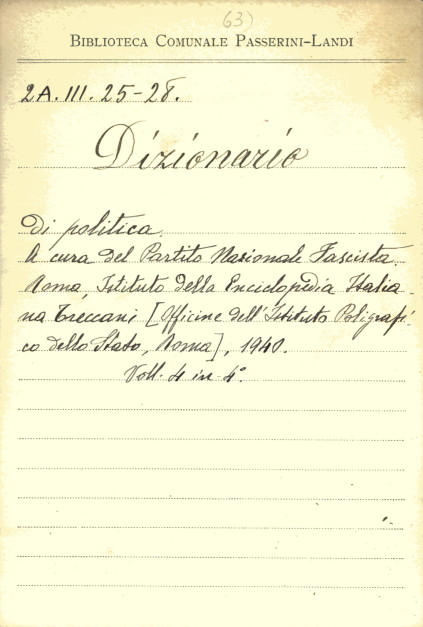 63)
BIBLIOTECA COMUNALE PASSERINI-LANDI
2A.III.25-28.
Dizionario
di politica.
A cura del Partito Nazionale Fascista.
Roma, Istituto della Enciclopedia Italia-
na Treccani [Officine dell'Istituto Poligrafi-
co dello Stato, Roma], 1940.
Voll. 4 in-4°.